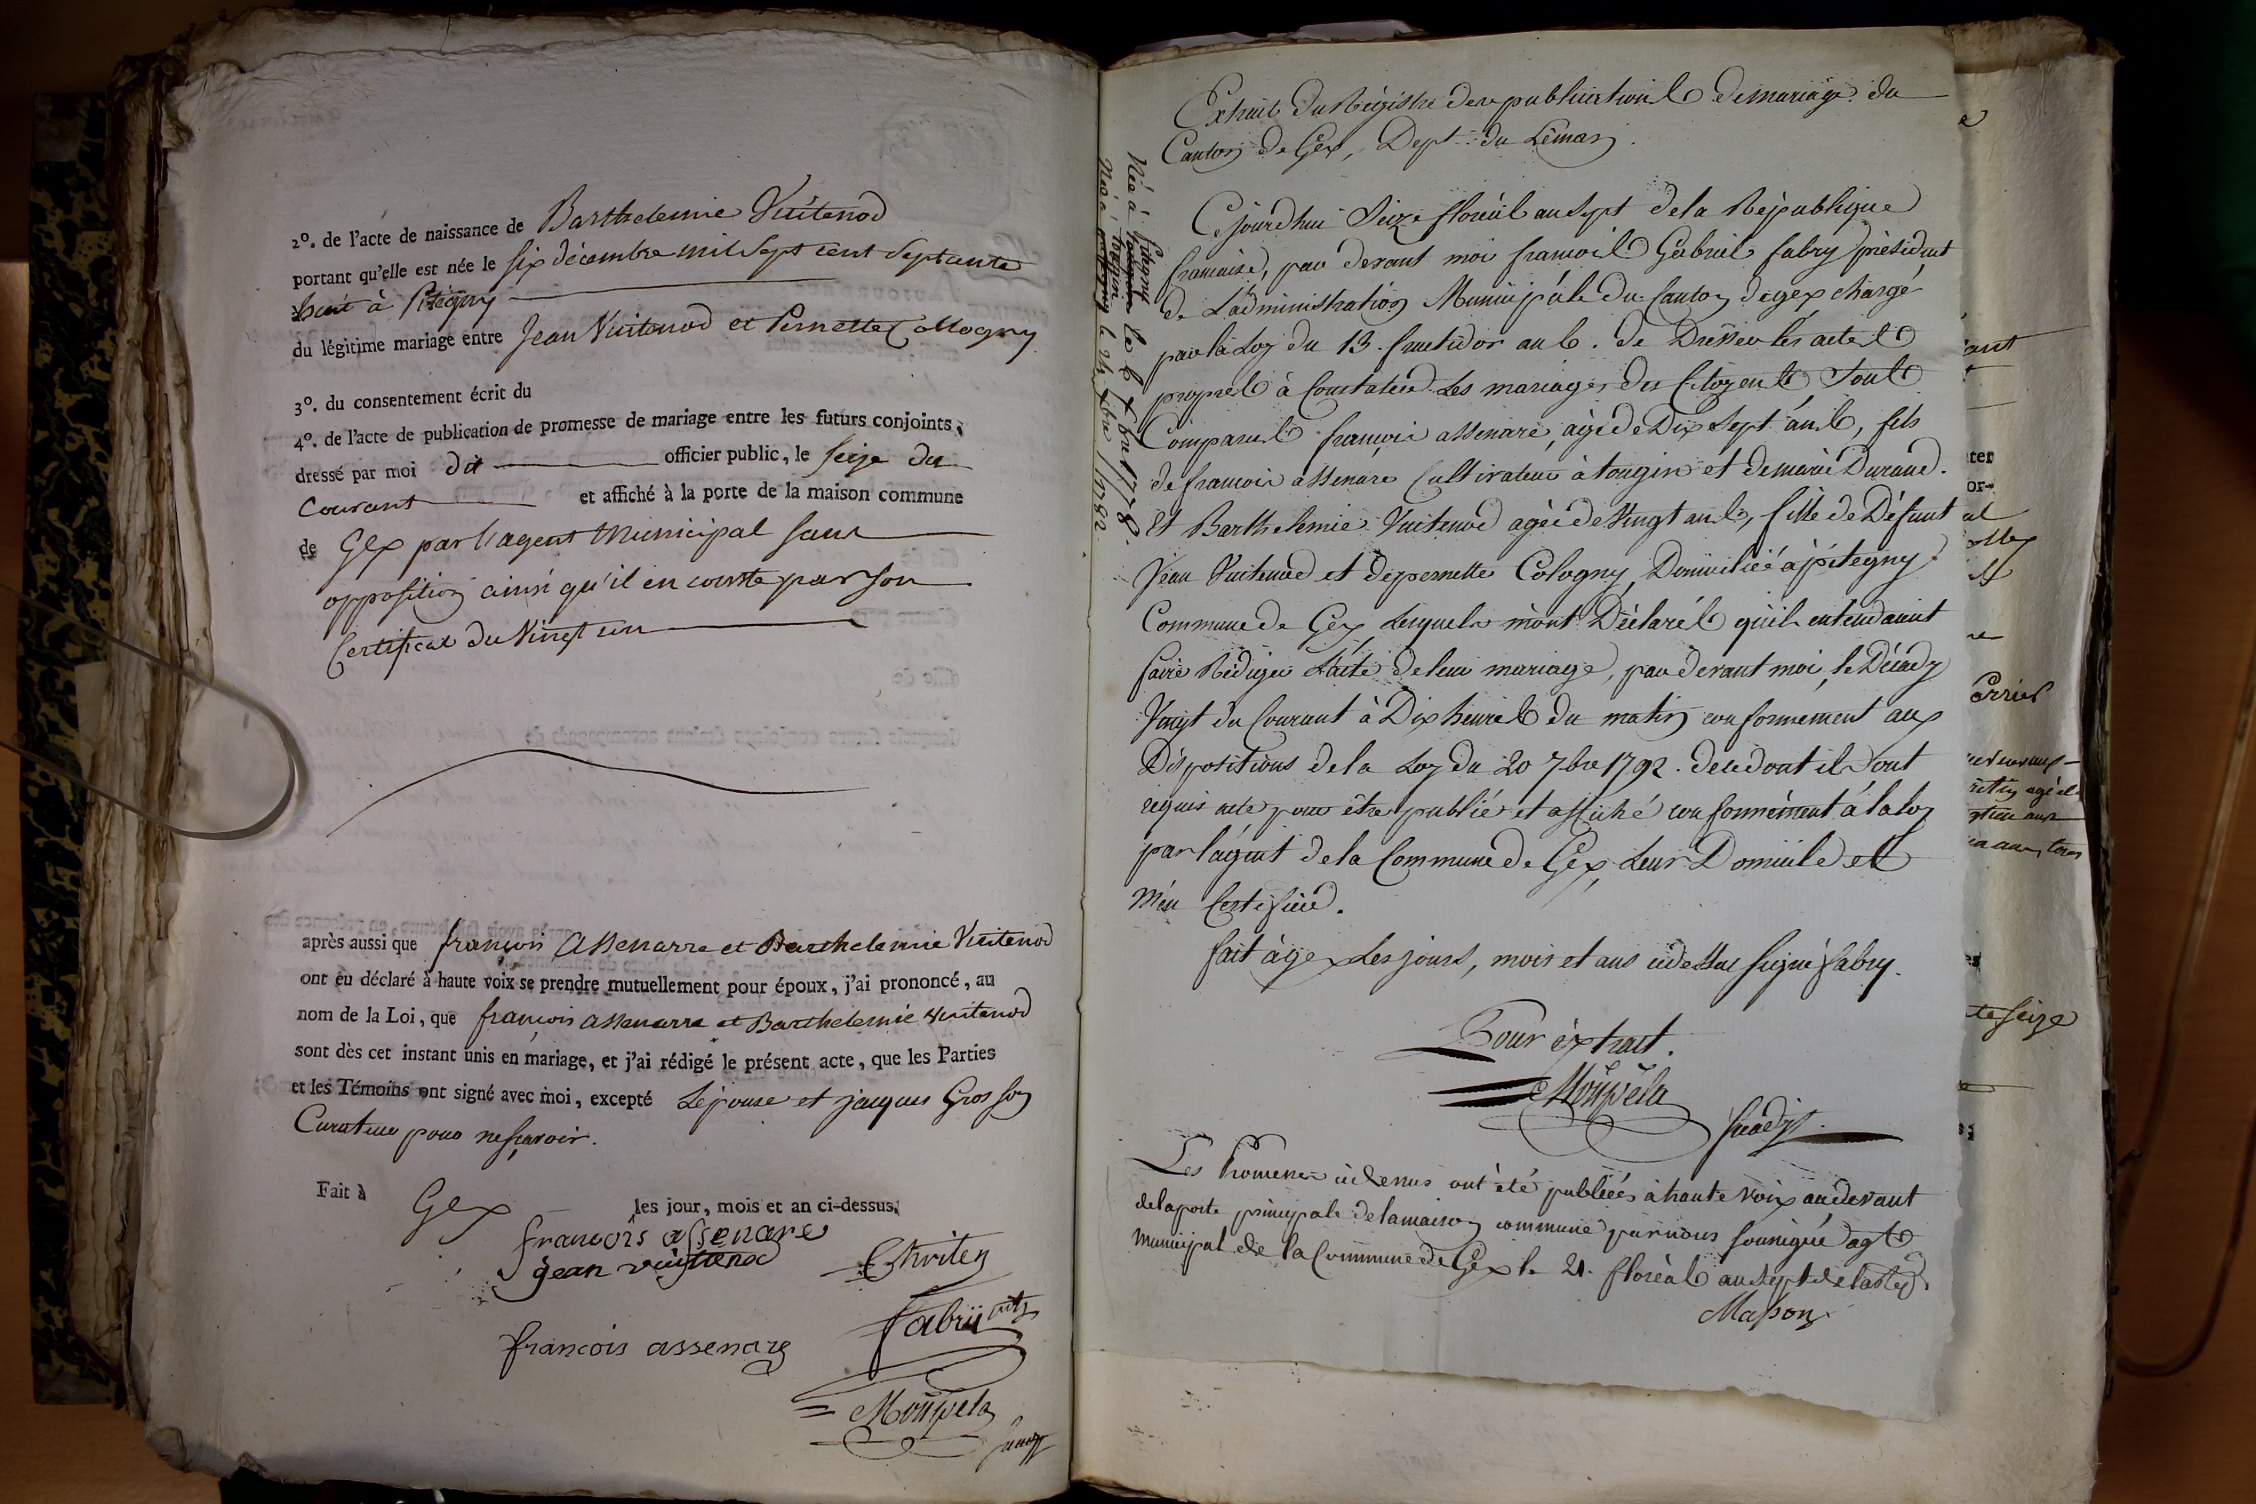 2º. de l'acte de naissance de Barthelemie Vuitenod
portant qu'elle est née le six décembre mil sept cent septante
huit à Pitegny
du légitime mariage entre Jean Vuitenod et Pernette Collogny
3º. du consentement écrit du
4º. de l'acte de publication de promesse de mariage entre les futurs conjoints,
dressé par moi dit officier public, le seize du
courant et affiché à la porte de la maison commune
de Gex par l'agent Municipal sans
opposition ainsi qu'il en conste par son
Certificat du Vingt un
après aussi que françois Assenarre et Barthelemie Vuitenod
ont eu déclaré à haute voix se prendre mutuellement pour époux, j'ai prononcé, au
nom de la Loi, que françois assenarre et Barthelemie Vuitenod
sont dès cet instant unis en mariage, et j'ai rédigé le présent acte, que les Parties
et les Témoins ont signé avec moi, excepté Lépouse et jacques Grosson
Curateur pour ne sçavoir.
Fait à Gex les jour, mois et an ci-dessus,
francois assenare
jean vuitenod
francois assenare
Fabry
Extrait du Régistre des publications de mariage du
Canton de Gex, Dept. du Léman.
Cejourdhui Seize floréal an Sept de la République
francaise, par devant moi francois Gabriel fabry président
de L'administration Municipale du Canton de gex chargé
par la Loy du 13. fructidor an 6. de Dresser les actes
propres à Constater Les mariages des Citoyens, Sont
Comparus françois assenare, agé de Dix Sept ans, fils
de francois assenare Cultivateur à tougin et de marie Durand.
Et Barthelemie Vuitenod agée de Vingt ans, fille de Défunt
Jean Vuitenod et de pernette Cologny, Domiciliée à pitegny
Commune de Gex, Lesquels m'ont Déclarés qu'ils entendaient
faire Rédiger L'acte de leur mariage, par devant moi, le Décady
Vingt du Courant à Dix heures du matin conformement aux
Dispositions de la Loy du 20 7bre 1792. de ce dont ils ont
requis acte pour être publié et affiché conformément à la loy
par l'agent de la Commune de Gex, Leur Domicile et
m'en Certifier.
fait à gex Les jours, mois et ans cidessus signé fabry.
Pour éxtrait.
Les Promesses cidessus ont été publiées à haute voix audevant
de la porte principale de la maison commune par nous soussigné agt
municipal de la Commune de Gex le 21. floréal an sept de la Rep
Masson
Née à Pitegny le 6 Xbre 1778
Né à tougin le 24 Xbre 1782